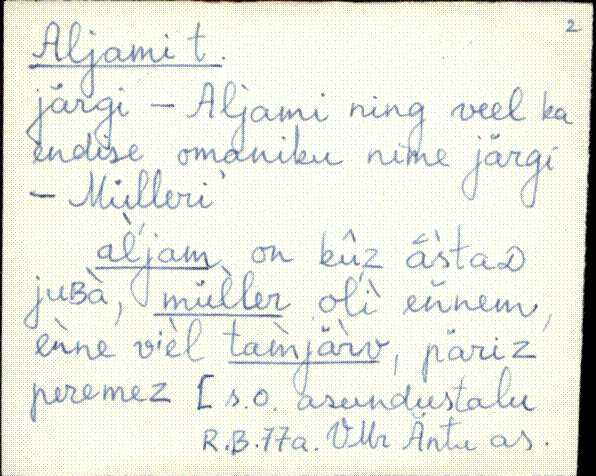 2
Aljami t.
järgi – Aljami ning veel ka
endise omaniku nime järgi
– Mülleri
àl̀jam on kûz ǟ̀staᴅ
juʙà, mǜl̀ler olì eǹnem,
eǹne vièl tam̀jär̀v, päriz
peremez [s.o. asundustalu
R.B. 77a. VMr Äntu as.